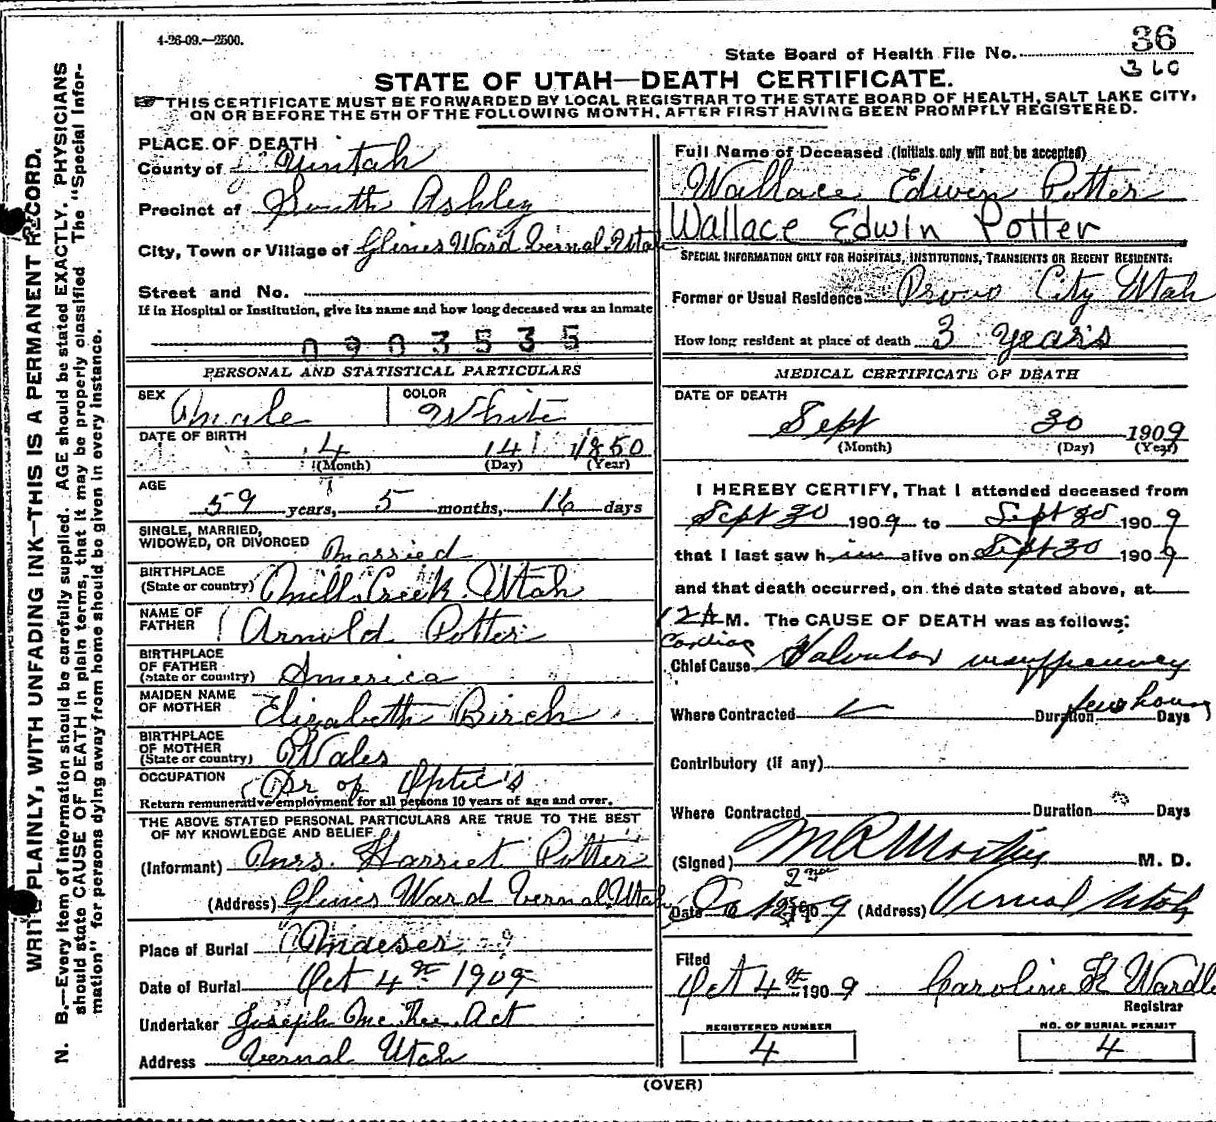 WRITE PLAINLY, WITH UNFADING INK—THIS IS A PERMANENT RECORD.
N. B.—Every item of information should be carefully supplied. AGE should be stated EXACTLY. PHYSICIANS
should state CAUSE OF DEATH in plain terms, that it may be properly classified The "Special Infor-
mation" for persons dying away from home should be given in every instance.
4-26-09.—2500.
State Board of Health File No. 36
360
STATE OF UTAH—DEATH CERTIFICATE.
THIS CERTIFICATE MUST BE FORWARDED BY LOCAL REGISTRAR TO THE STATE BOARD OF HEALTH, SALT LAKE CITY,
ON OR BEFORE THE 5TH OF THE FOLLOWING MONTH, AFTER FIRST HAVING BEEN PROMPTLY REGISTERED.
PLACE OF DEATH
County of Uintah
Precinct of South Ashley
City, Town or Village of Glines Ward Vernal Utah
Street and No.
If in Hospital or Institution, give its name and how long deceased was an inmate
0903535
PERSONAL AND STATISTICAL PARTICULARS
SEX Male COLOR White
DATE OF BIRTH 4 14 1850
(Month) (Day) (Year)
AGE
59 years, 5 months, 16 days
SINGLE, MARRIED,
WIDOWED, OR DIVORCED Married
BIRTHPLACE
(State or country) Mill Creek Utah
NAME OF
FATHER Arnold Potter
BIRTHPLACE
OF FATHER
(State or country) America
MAIDEN NAME
OF MOTHER Elizabeth Birch
BIRTHPLACE
OF MOTHER
(State or country) Wales
OCCUPATION Dr of Optic's
Return remunerative employment for all persons 10 years of age and over.
THE ABOVE STATED PERSONAL PARTICULARS ARE TRUE TO THE BEST
OF MY KNOWLEDGE AND BELIEF.
(Informant) Mrs. Harriet Potter
(Address) Glines Ward Vernal Utah
Place of Burial Maeser
Date of Burial Oct 4th 1909
Undertaker Joseph Act
Address Vernal Utah
Full Name of Deceased (Initials only will not be accepted)
Wallace Edwin Potter
Wallace Edwin Potter
SPECIAL INFORMATION ONLY FOR HOSPITALS, INSTITUTIONS, TRANSIENTS OR RECENT RESIDENTS:
Former or Usual Residence Provo City Utah
How long resident at place of death 3 years
MEDICAL CERTIFICATE OF DEATH
DATE OF DEATH
Sept 30 1909
(Month) (Day) (Year)
I HEREBY CERTIFY, That I attended deceased from
Sept 30 1909 to Sept 30 1909
that I last saw him alive on Sept 30 1909
and that death occurred, on the date stated above, at
12 A M. The CAUSE OF DEATH was as follows:
Cardiac
Chief Cause Valvular insufficiency
Where Contracted Duration few hours Days
Contributory (if any)
Where Contracted Duration Days
(Signed) M. D.
Date Oct 2nd 1909 (Address) Vernal Utah
Filed
Oct 4th 1909 Caroline K Wardle
Registrar
REGISTERED NUMBER
4
NO. OF BURIAL PERMIT
4
(OVER)